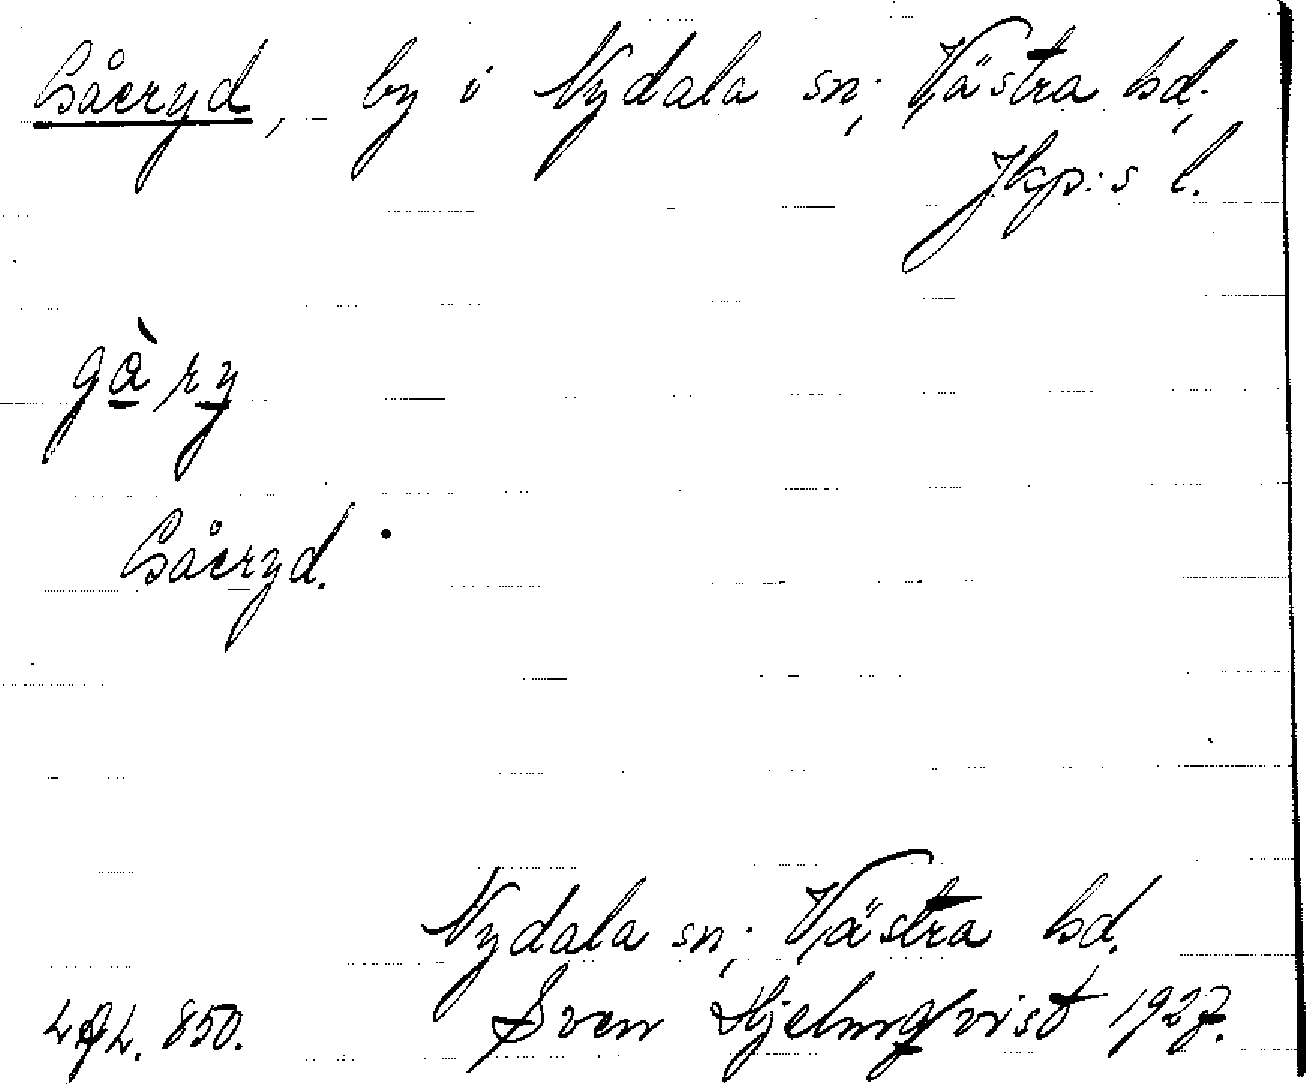 Gåeryd, by i Nydala sn; Västra hd.
Jkp:s l.
gàry
Gåeryd.
Nydala sn; Västra hd.
850. Sven Hjelmqvist 1927.